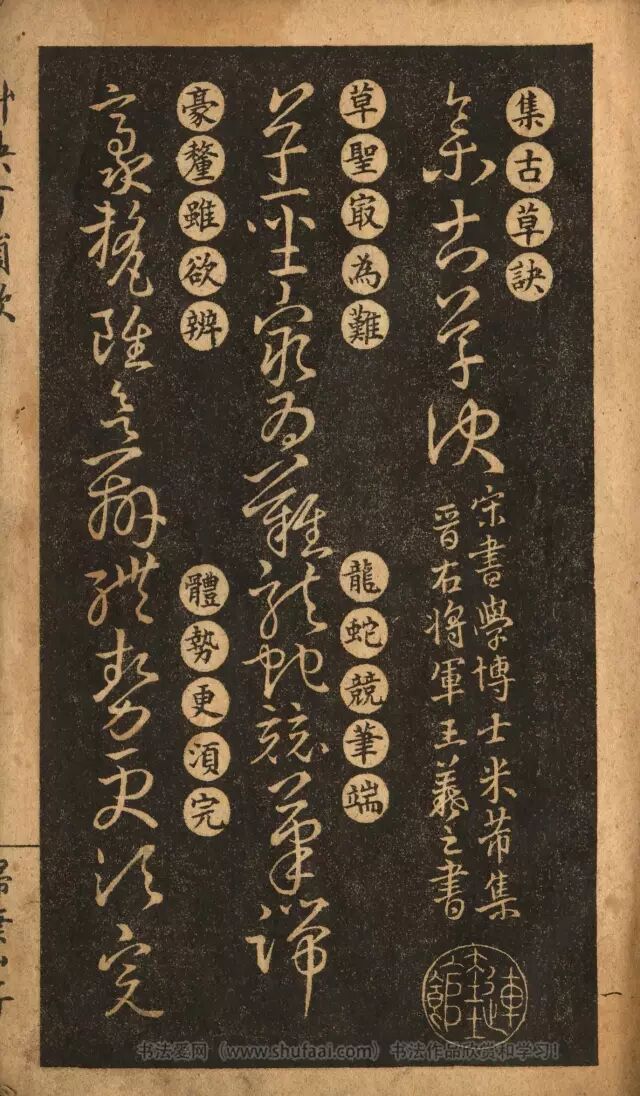 集古草訣
集古草訣
宋書學博士米芾集
晉右將軍王羲之書
草聖㝡為難
龍蛇競筆端
草聖㝡為難龍蛇競筆端
豪釐雖欲辨
體勢更湏完
豪釐雖欲辨體勢更湏完
一
书法爱网（www.shufaai.com） 书法作品欣赏和学习！